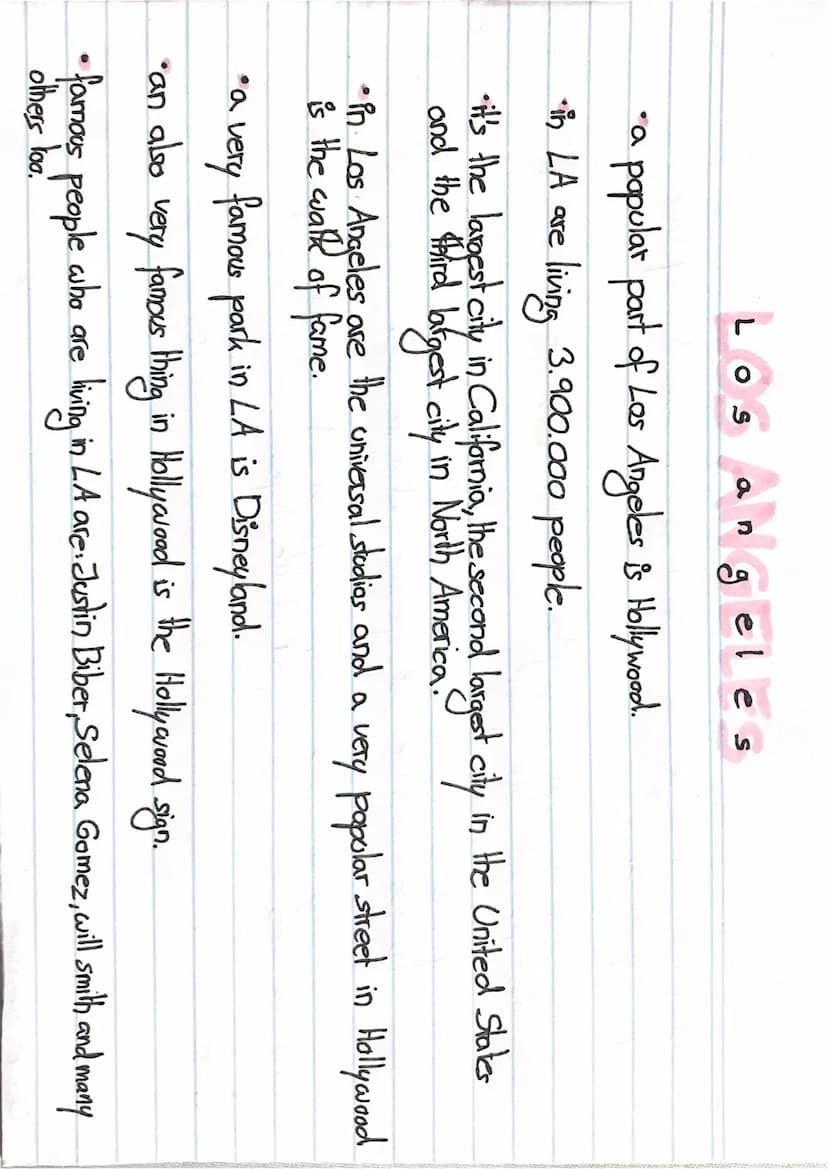 Los angeles
• a popular part of Los Angeles is Hollywood.
• in LA are living 3.900.000 people.
• it's the largest city in California, the second largest city in the United States
and the third largest city in North America.
• in Los Angeles are the universal studios and a very popular street in Hollywood
is the walk of fame.
• a very famous park in LA is Disneyland.
• an also very famous thing in Hollywood is the Hollywood sign.
• famous people who are living in LA are: Justin Biber, Selena Gomez, will smith and many
others too.